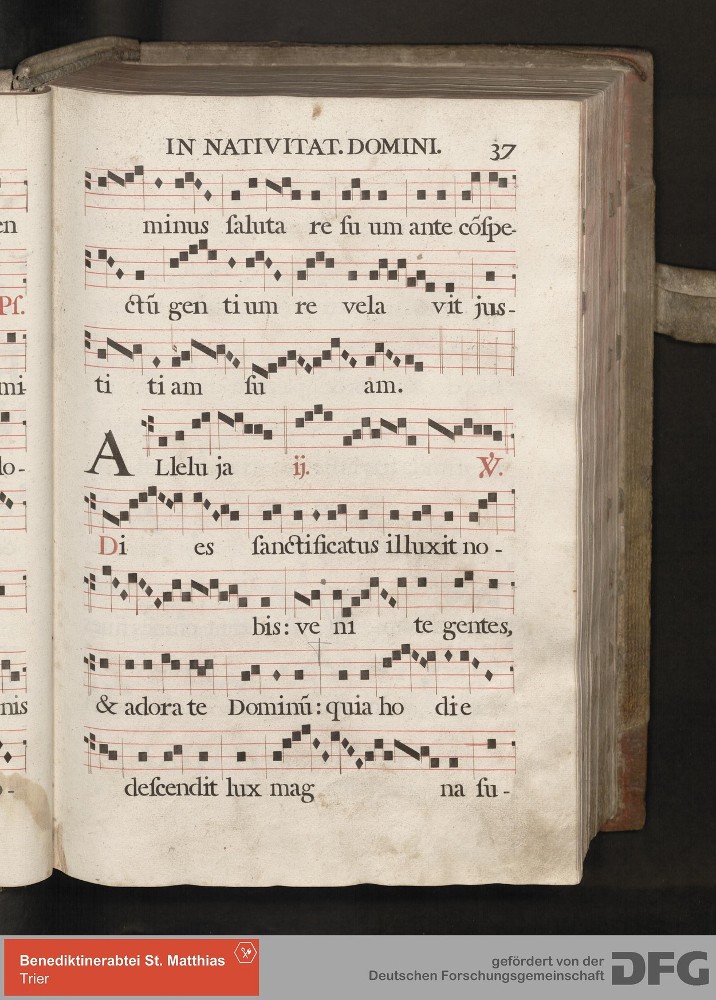 IN NATIVITAT. DOMINI. 37
minus ſaluta re ſu um ante cõſpe-
ctũ gen tium re vela vit jus-
ti tiam ſu am.
ALlelu ja ij. ℣.
Di es ſanctificatus illuxit no-
bis: ve ni te gentes,
& adora te Dominũ: quia ho die
deſcendit lux mag na ſu-
en
Pſ.
mi-
lo-
nis
Benediktinerabtei St. Matthias
Trier
gefördert von der
Deutschen Forschungsgemeinschaft
DFG